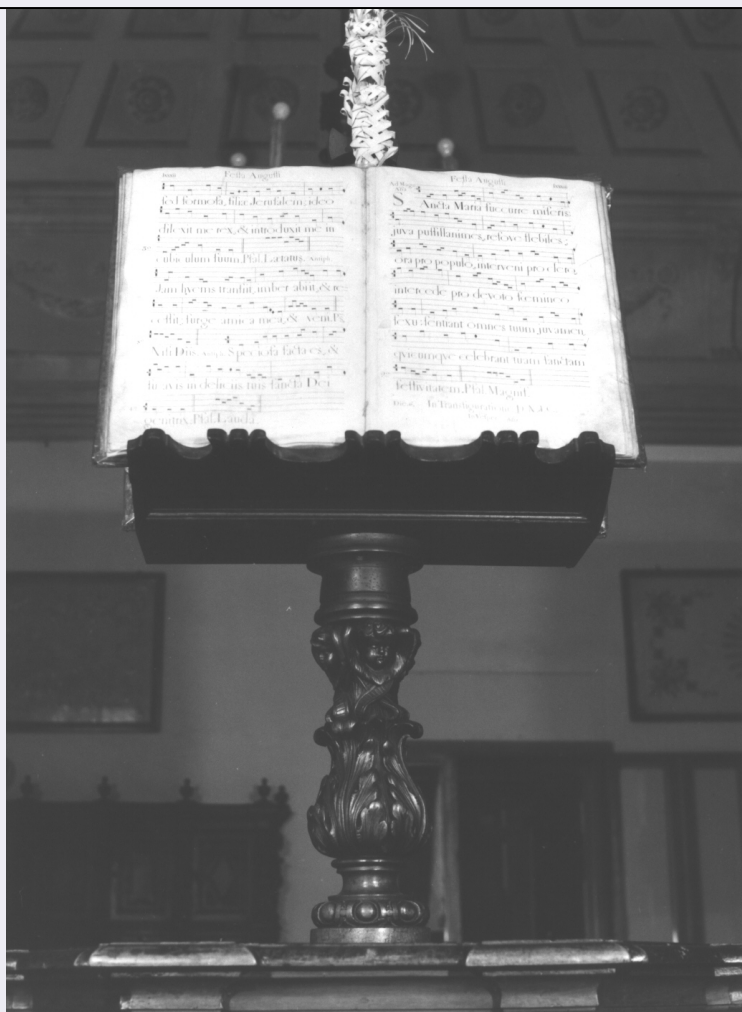 Festa Augusti
sed formosa, filiæ Jerusalem, ideo
dilexit me rex, & introduxit me in
cubiculum suum. Psal. Lætatus.
Jam hyems transiit, imber abiit, & re-
cessit, surge amica mea, & veni. Ps.
Nisi Dnus. Speciosa facta es, &
suavis in deliciis tuis sancta Dei
genitrix. Psal. Lauda.
Festa Augusti
Sancta Maria succurre miseris,
juva pusillanimes, refove flebiles;
ora pro populo, interveni pro clero,
intercede pro devoto fœmineo
sexu: sentiant omnes tuum juvamen,
quicumque celebrant tuam sanctam
festivitatem. Psal. Magnif.
In Transfiguratione